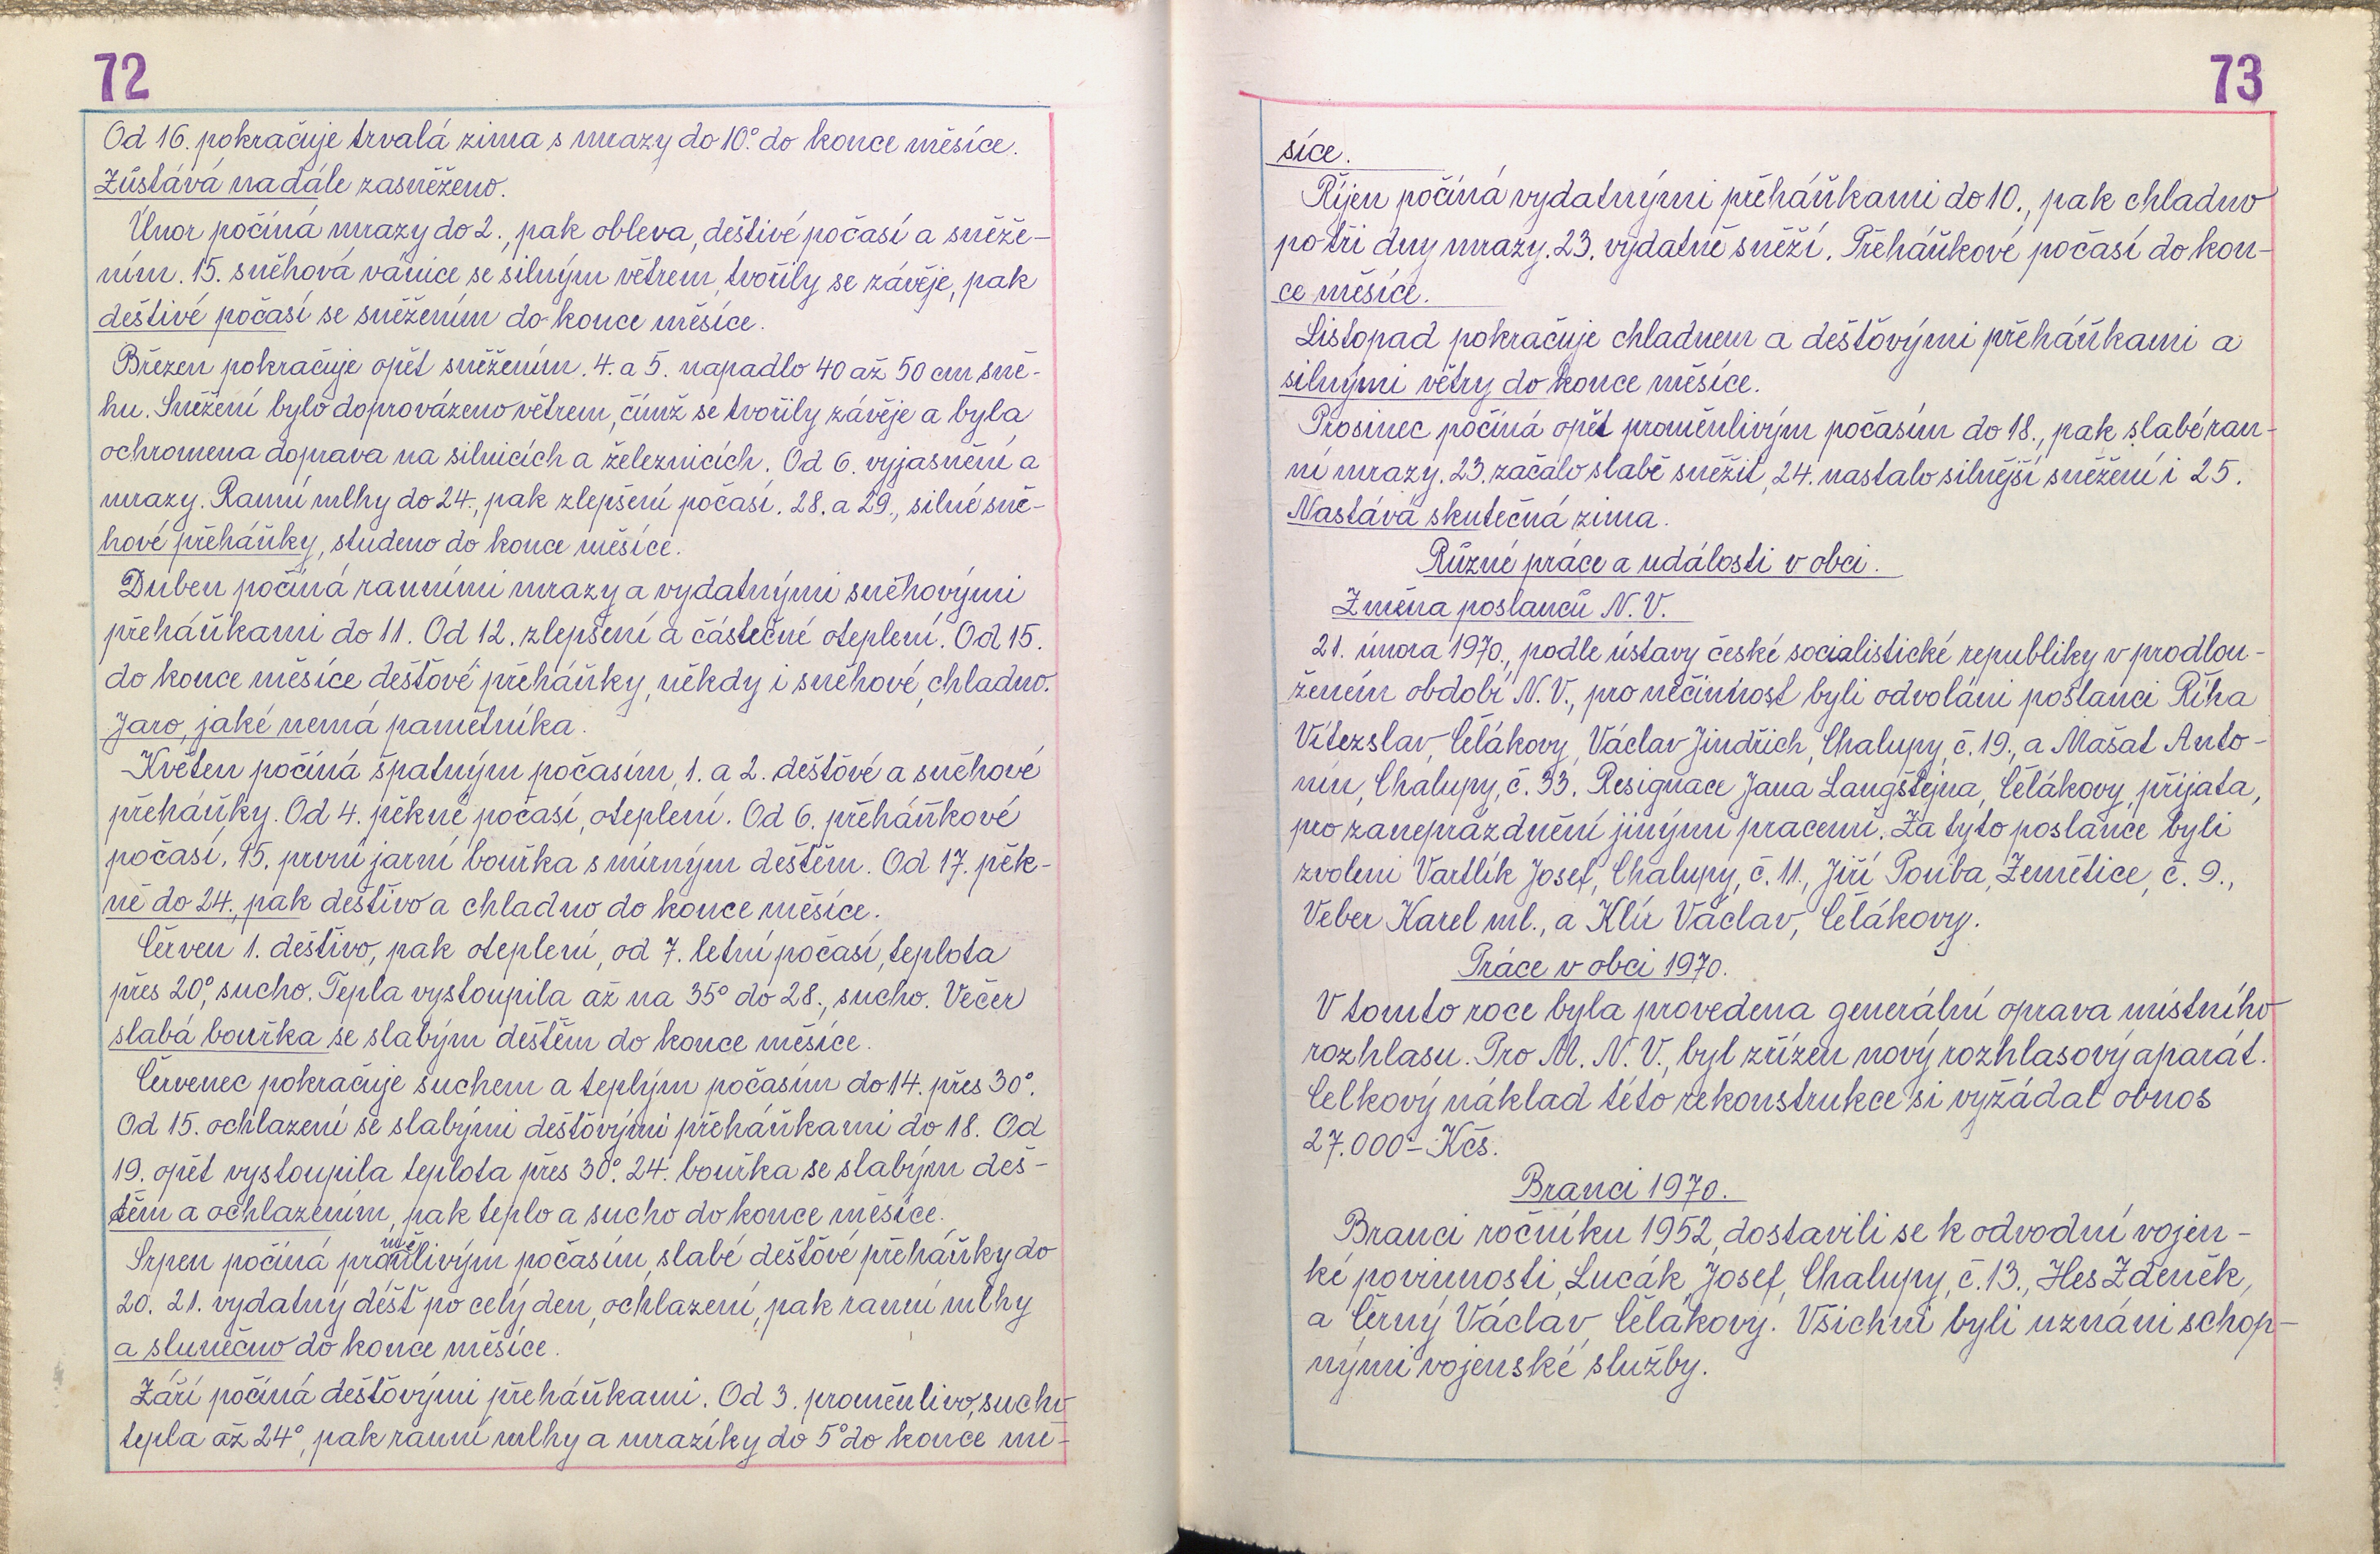 72
Od 16. pokračuje trvalá zima s mrazy do 10.° do konce měsíce.
Zůstává nadále zasněženo.
Únor počíná mrazy do 2., pak obleva, deštivé počasí a sněže-
ním. 15. sněhová vánice se silným větrem, tvořily se závěje, pak
deštivé počasí se sněžením do konce měsíce.
Březen pokračuje opět sněžením. 4. a 5. napadlo 40 až 50 cm sně-
hu. Sněžení bylo doprovázeno větrem, čímž se tvořily závěje a byla
ochromena doprava na silnicích a železnicích. Od 6. vyjasnění a
mrazy. Ranní mlhy do 24., pak zlepšení počasí. 28. a 29., silné sně-
hové přeháňky, studeno do konce měsíce.
Duben počíná ranními mrazy a vydatnými sněhovými
přeháňkami do 11. Od 12. zlepšení a částečné oteplení. Od 15.
do konce měsíce dešťové přeháňky, někdy i sněhové, chladno.
Jaro, jaké nemá pamětníka.
Květen počíná špatným počasím, 1. a 2. dešťové a sněhové
přeháňky. Od 4. pěkné počasí, oteplení. Od 6. přeháňkové
počasí. 15. první jarní bouřka s mírným deštěm. Od 17. pěk-
ně do 24., pak deštivo a chladno do konce měsíce.
Červen 1. deštivo, pak oteplení, od 7. letní počasí, teplota
přes 20°, sucho. Tepla vystoupila až na 35° do 28., sucho. Večer
slabá bouřka se slabým deštěm do konce měsíce.
Červenec pokračuje suchem a teplým počasím do 14. přes 30°.
Od 15. ochlazení se slabými dešťovými přeháňkami do 18. Od
19. opět vystoupila teplota přes 30°. 24. bouřka se slabým deš-
těm a ochlazením, pak teplo a sucho do konce měsíce.
Srpen počíná proměnlivým počasím, slabé dešťové přeháňky do
20. 21. vydatný déšť po celý den, ochlazení, pak ranní mlhy
a slunečno do konce měsíce.
Září počíná dešťovými přeháňkami. Od 3. proměnlivo, sucho
tepla až 24°, pak ranní mlhy a mrazíky do 5° do konce mě-
73
síce.
Říjen počíná vydatnými přeháňkami do 10., pak chladno
po tři dny mrazy. 23. vydatně sněží. Přeháňkové počasí do kon-
ce měsíce.
Listopad pokračuje chladnem a dešťovými přeháňkami a
silnými větry do konce měsíce.
Prosinec počíná opět proměnlivým počasím do 18., pak slabé ran-
ní mrazy. 23. začalo slabě sněžit, 24. nastalo silnější sněžení i 25.
Nastává skutečná zima.
Různé práce a události v obci.
Změna poslanců N. V.
21. února 1970., podle ústavy české socialistické republiky v prodlou-
ženém období N. V., pro nečinnost byli odvoláni poslanci Říha
Vítezslav, Čelákovy, Václav Jindřich, Chalupy, č. 19., a Mašat Anto-
nín, Chalupy, č. 33. Resignace Jana Langštejna, Čelákovy, přijata,
pro zaneprázdnění jinými pracemi. Za tyto poslance byli
zvoleni Vartlík Josef, Chalupy, č. 11., Jiří Pouba, Zemětice, č. 9.,
Veber Karel ml., a Klír Václav, Čelákovy.
Práce v obci 1970.
V tomto roce byla provedena generální oprava místního
rozhlasu. Pro M. N. V., byl zřízen nový rozhlasový aparát.
Celkový náklad této rekonstrukce si vyžádal obnos
27.000.- Kčs.
Branci 1970.
Branci ročníku 1952, dostavili se k odvodní vojen-
ké povinnosti, Lucák, Josef, Chalupy, č. 13., Hes Zdeněk,
a Černý Václav, Čelákovy. Všichni byli uznáni schop-
nými vojenské služby.